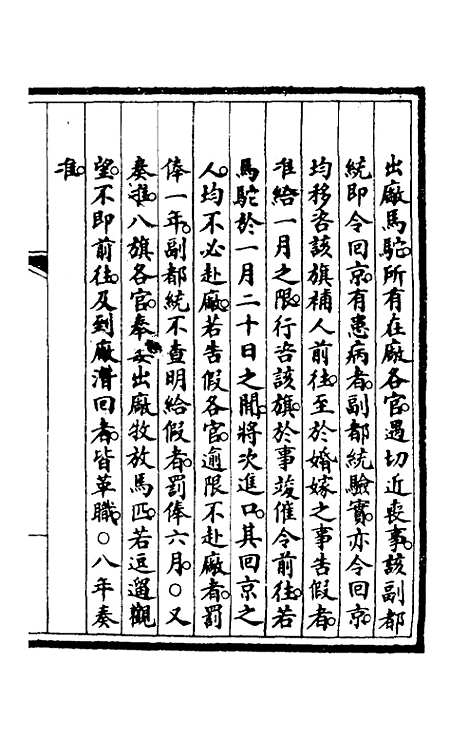 出廠馬駝。所有在廠各官。遇切近喪事。該副都
統即令回京。有患病者。副都統驗實。亦令回京。
均移咨該旗補人前往。至於婚嫁之事告假者。
准給一月之限。行咨該旗。於事竣催令前往。若
馬駝於一月二十日之間。將次進口。其回京之
人。均不必赴廠。若告假各官。逾限不赴廠者。罰
俸一年。副都統不查明給假者。罰俸六月。○又
奏准。八旗各官。奉委出廠牧放馬匹。若逗遛觀
望。不即前往。及到廠潛回者。皆革職。○八年奏
准。